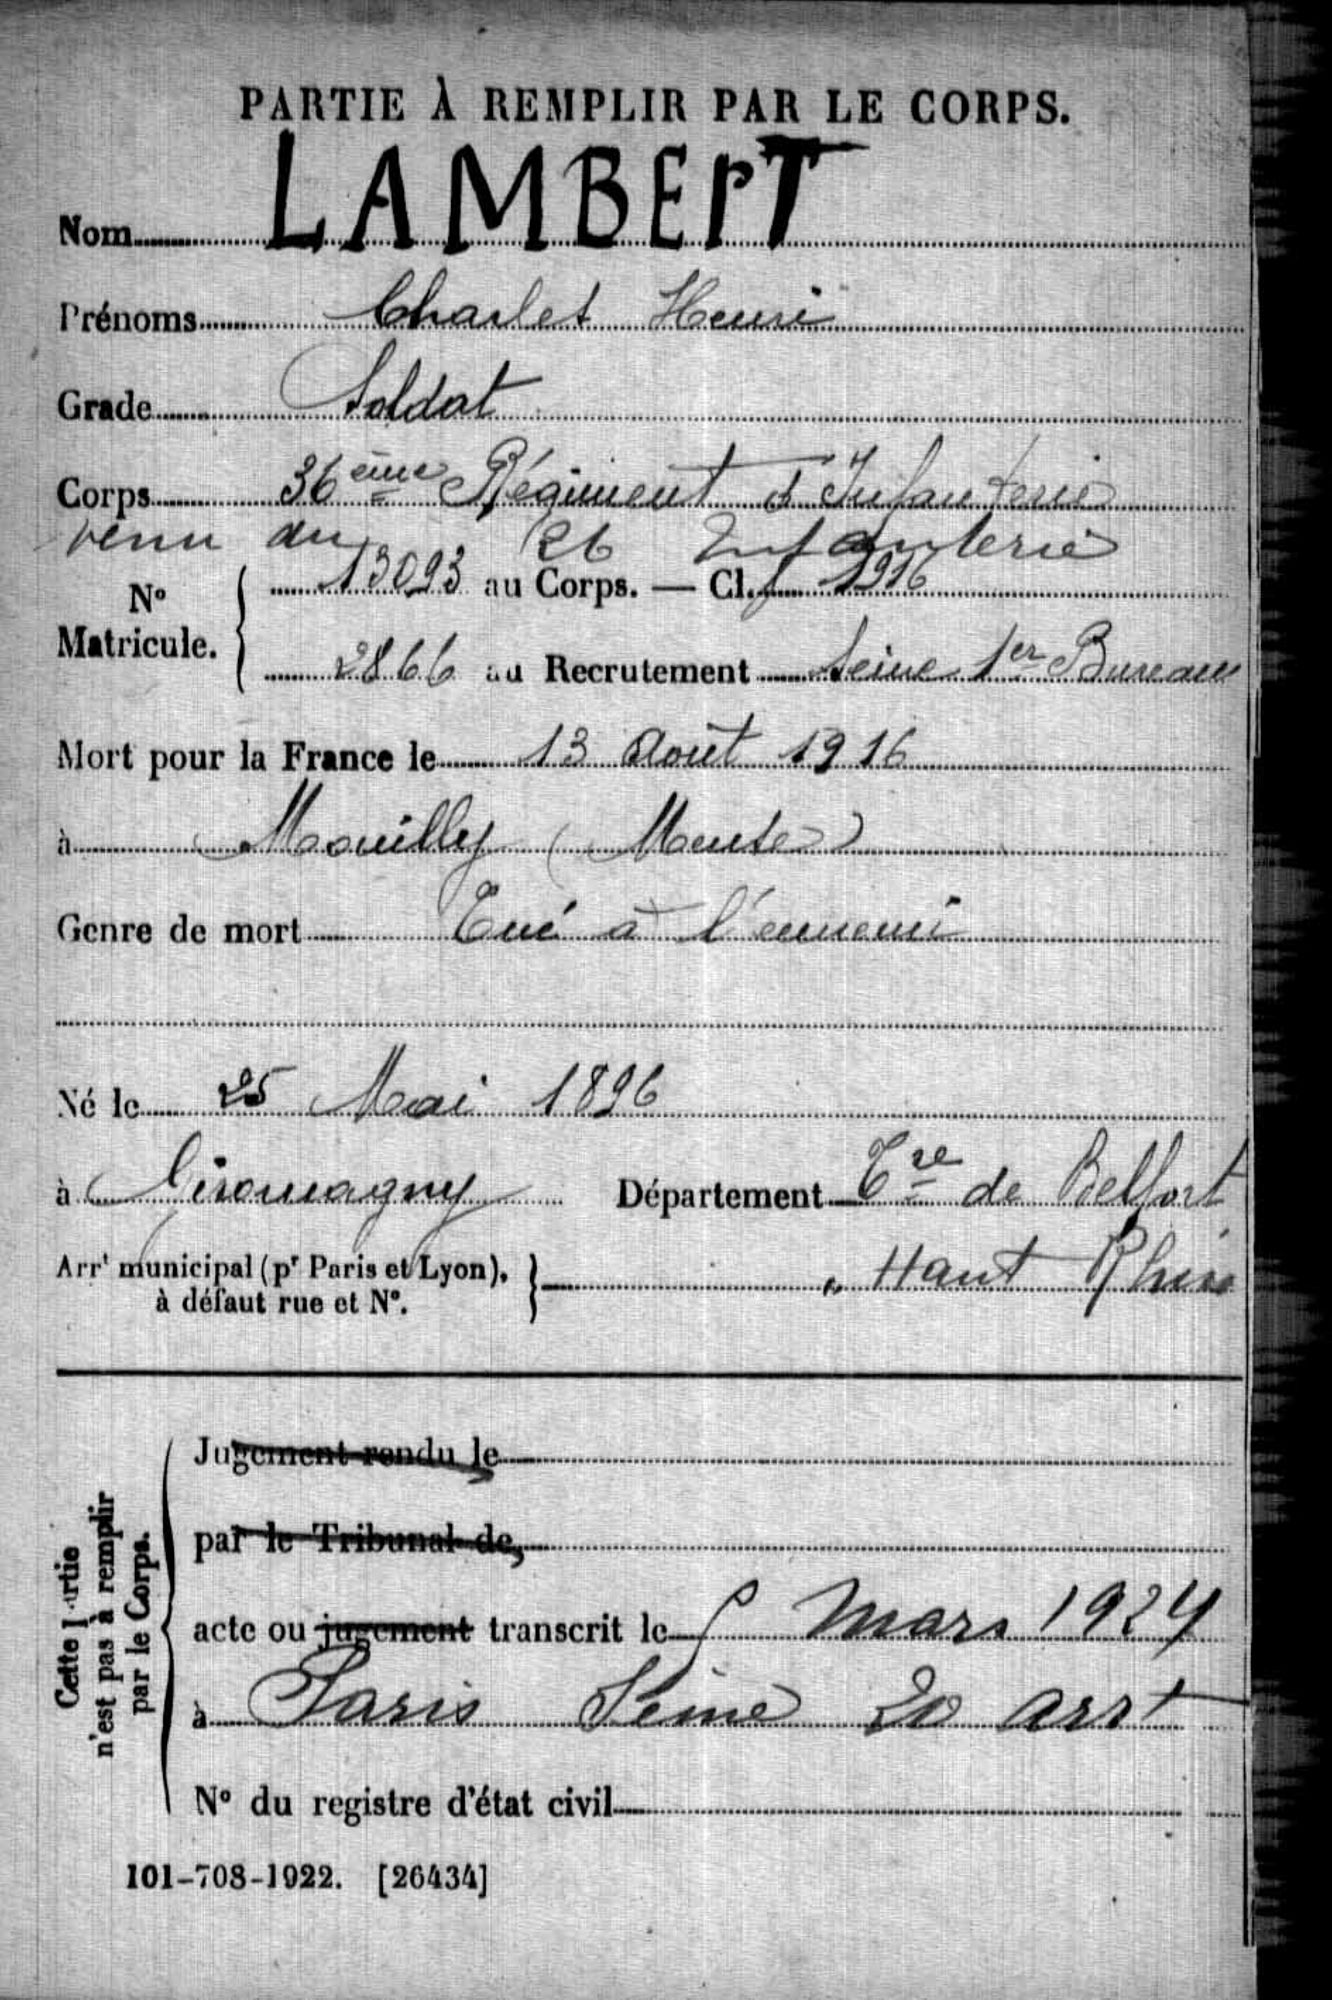 PARTIE À REMPLIR PAR LE CORPS.
Nom LAMBErT
Prénoms Charles Henri
Grade Soldat
Corps 36ème Régiment d'Infanterie
venu du 26 Infanterie
N° Matricule. 13093 au Corps. — Cl. 1916
2866 au Recrutement Seine 1er Bureau
Mort pour la France le 13 Août 1916
à Mouilly (Meuse)
Genre de mort Tué à l'ennemi
Né le 25 Mai 1896
à Giromagny Département Tre de Belfort
Arrt municipal (pr Paris et Lyon), à défaut rue et N°. " Haut Rhin
Cette Partie n'est pas à remplir par le Corps.
Jugement rendu le
par le Tribunal de,
acte ou jugement transcrit le Mars 1924
à Paris Seine 20 arrt
N° du registre d'état civil
101-708-1922. [26434]